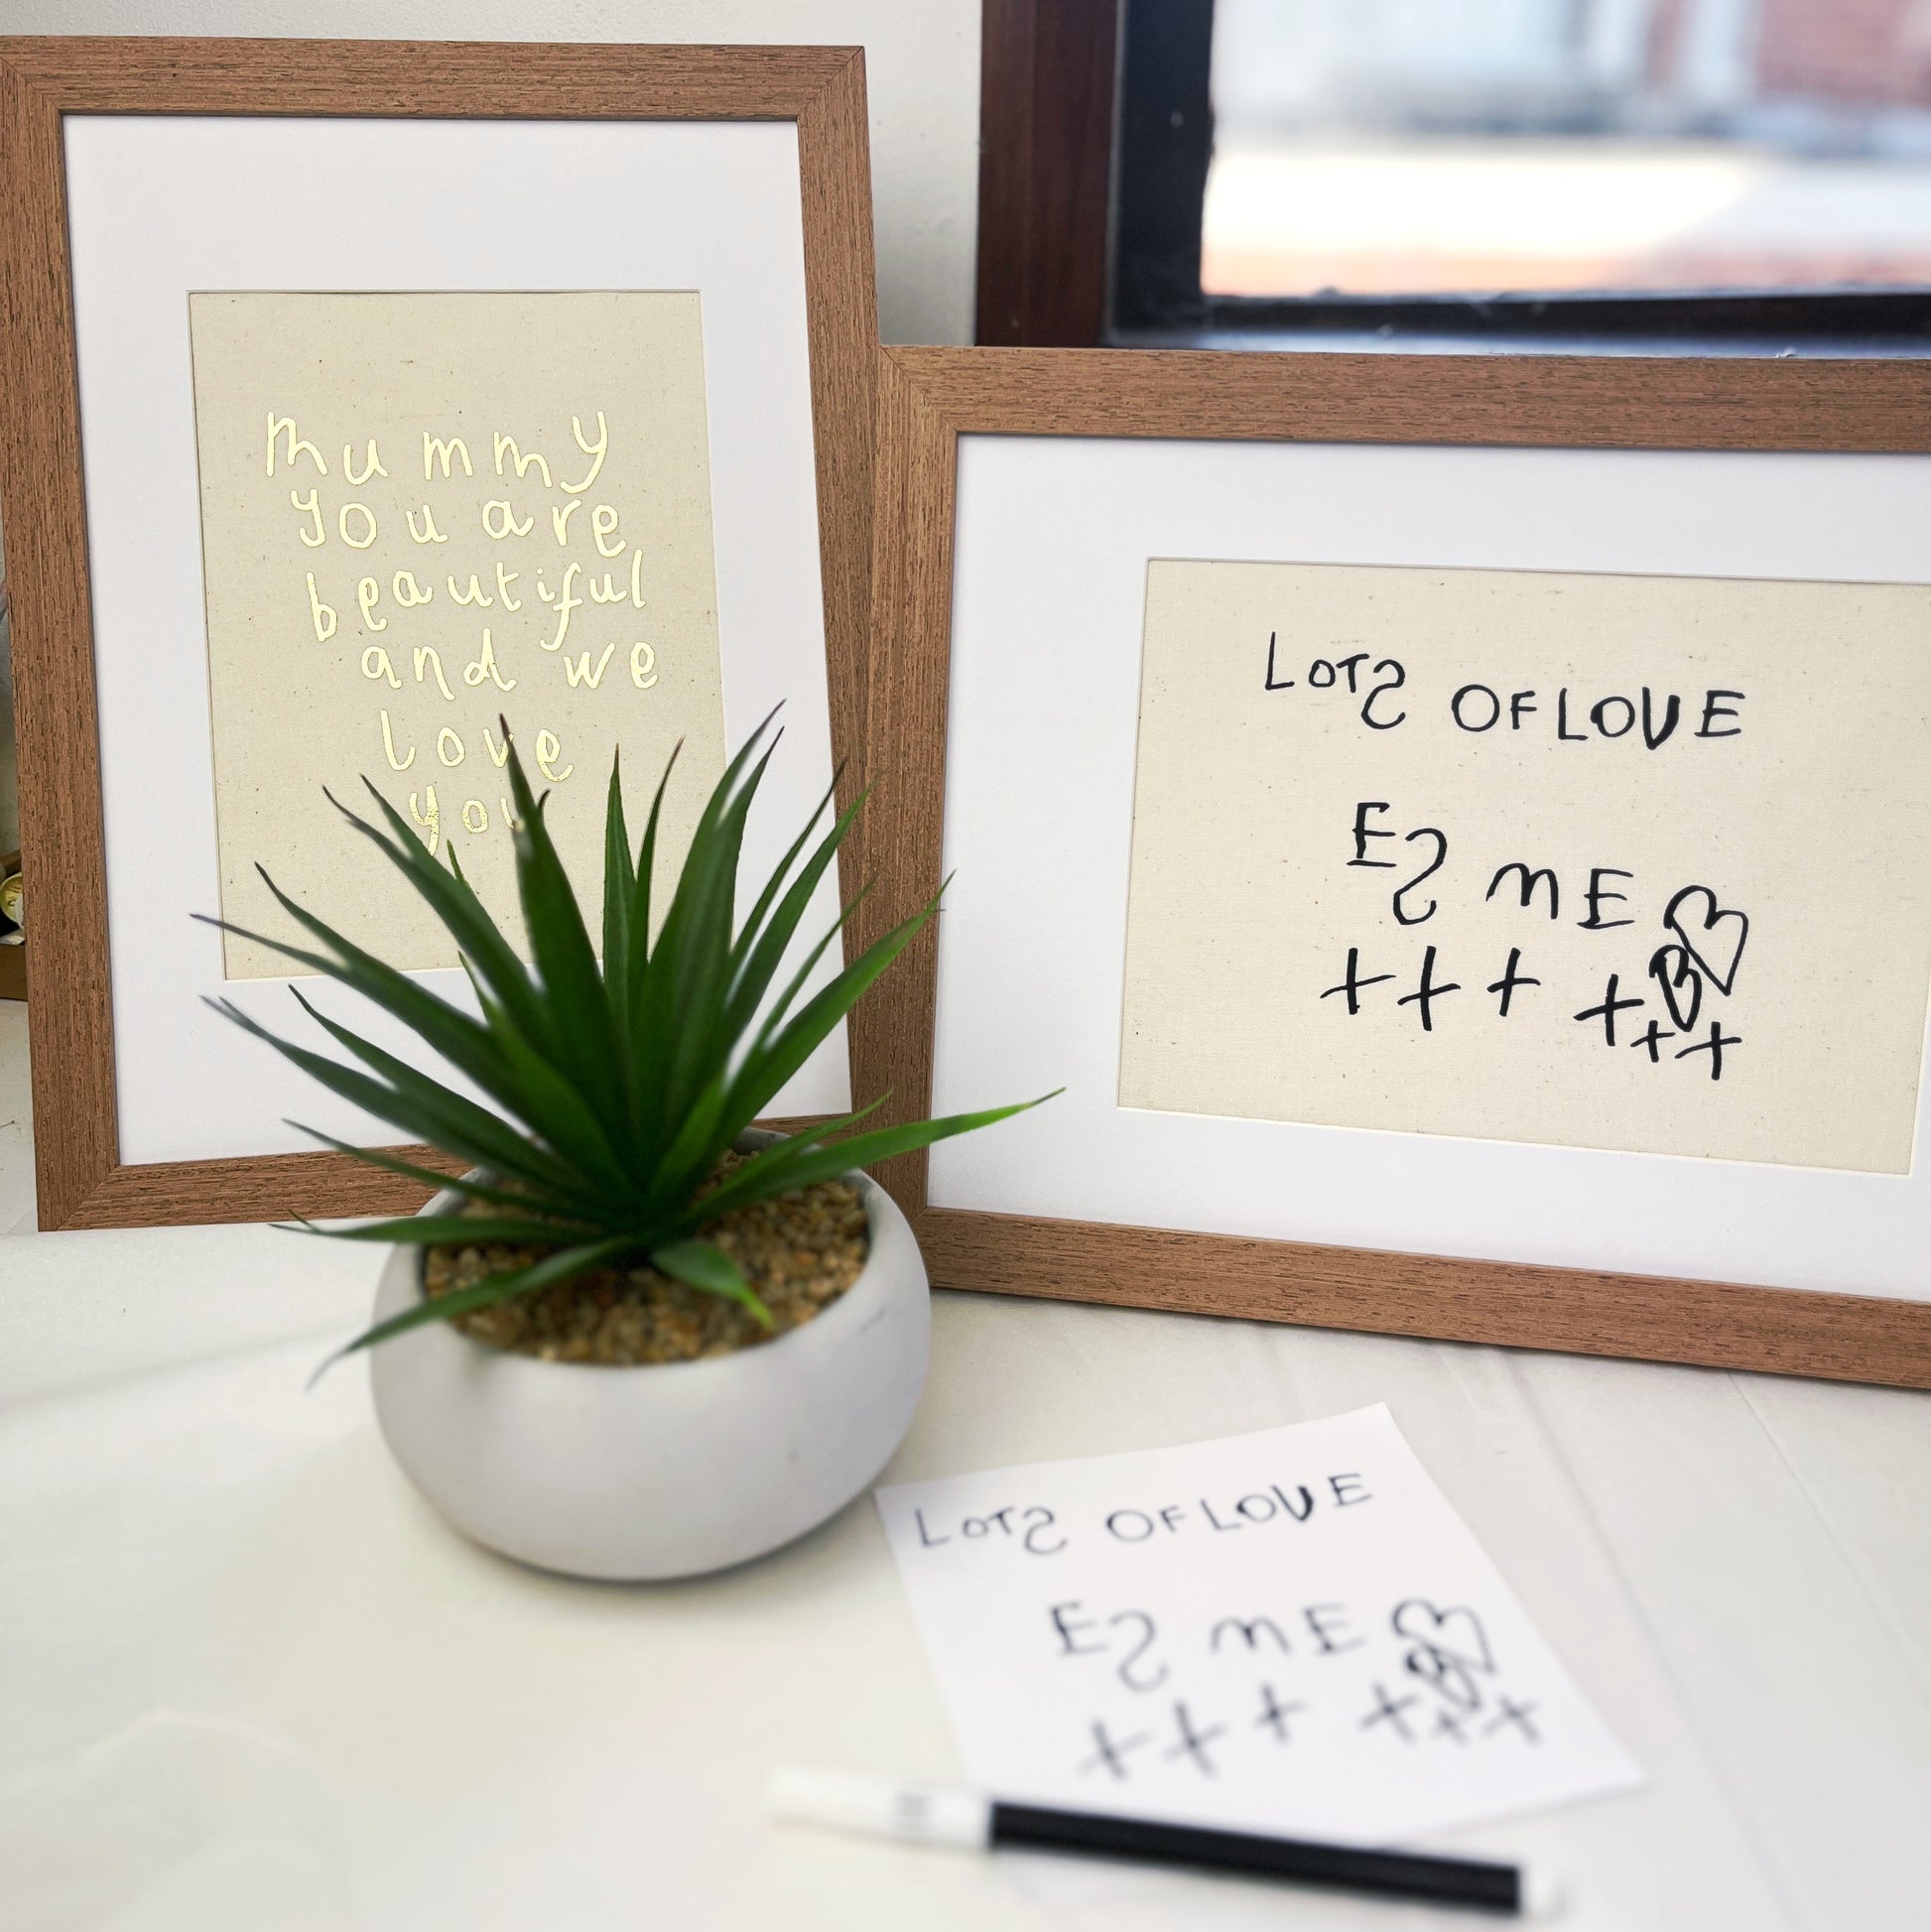 mummy
you are
beautiful
and we
love
you
LOTS OF LOVE
ESME
+++ +++
LOTS OF LOVE
ESME
+++ +++